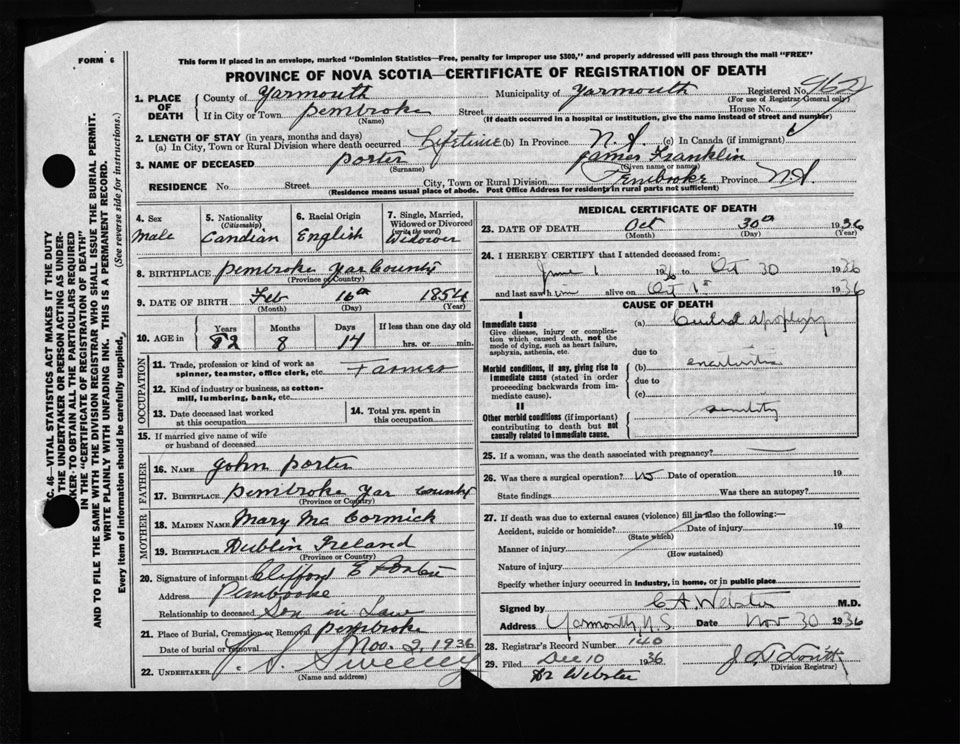 FORM 6
This form if placed in an envelope, marked "Dominion Statistics—Free, penalty for improper use $300," and properly addressed will pass through the mail "FREE"
PROVINCE OF NOVA SCOTIA—CERTIFICATE OF REGISTRATION OF DEATH
1. PLACE OF DEATH
County of Yarmouth Municipality of Yarmouth Registered No.
(For use of Registrar General only)
If in City or Town Pembroke Street House No.
(Name) (If death occurred in a hospital or institution, give the name instead of street and number)
2. LENGTH OF STAY (in years, months and days)
(a) In City, Town or Rural Division where death occurred Lifetime (b) In Province N.S. (c) In Canada (if immigrant)
3. NAME OF DECEASED Porter James Franklin
(Surname) (Given name or names)
RESIDENCE No. Street City, Town or Rural Division Pembroke Province N.S.
(Residence means usual place of abode. Post Office Address for residents in rural parts not sufficient)
4. Sex Male
5. Nationality (Citizenship) Candian
6. Racial Origin English
7. Single, Married, Widowed or Divorced (write the word) Widower
8. BIRTHPLACE Pembroke Yar County
(Province or Country)
9. DATE OF BIRTH Feb 16th 1854
(Month) (Day) (Year)
10. AGE in Years 82 Months 8 Days 14 If less than one day old hrs. or min.
OCCUPATION
11. Trade, profession or kind of work as spinner, teamster, office clerk, etc. Farmer
12. Kind of industry or business, as cotton-mill, lumbering, bank, etc.
13. Date deceased last worked at this occupation
14. Total yrs. spent in this occupation
15. If married give name of wife or husband of deceased
FATHER
16. NAME John Porter
17. BIRTHPLACE Pembroke Yar County
(Province or Country)
MOTHER
18. MAIDEN NAME Mary Mc Cormick
19. BIRTHPLACE Dublin Ireland
(Province or Country)
20. Signature of informant Clifford E Porter
Address Pembroke
Relationship to deceased Son in Law
21. Place of Burial, Cremation or Removal Pembroke
Date of burial or removal Nov. 2, 1936
22. UNDERTAKER Sweeney
(Name and address)
MEDICAL CERTIFICATE OF DEATH
23. DATE OF DEATH Oct 30th 1936
(Month) (Day) (Year)
24. I HEREBY CERTIFY that I attended deceased from:
June 1 1936 to Oct 30 1936
and last saw him alive on Oct 1936
CAUSE OF DEATH
I
Immediate cause
Give disease, injury or complication which caused death, not the mode of dying, such as heart failure, asphyxia, asthenia, etc.
(a) apoplexy
due to
Morbid conditions, if any, giving rise to immediate cause (stated in order proceeding backwards from immediate cause)
(b)
due to
(c)
II
Other morbid conditions (if important) contributing to death but not causally related to immediate cause.
senility
25. If a woman, was the death associated with pregnancy?
26. Was there a surgical operation? No Date of operation 19
State findings Was there an autopsy?
27. If death was due to external causes (violence) fill in also the following:—
Accident, suicide or homicide? Date of injury 19
(State which)
Manner of injury
(How sustained)
Nature of injury
Specify whether injury occurred in industry, in home, or in public place
Signed by C A Webster M.D.
Address Yarmouth, N.S. Date Nov 30 1936
28. Registrar's Record Number 140
29. Filed Dec 10 1936
(Division Registrar)
Dr Webster
C. 46—VITAL STATISTICS ACT MAKES IT THE DUTY
THE UNDERTAKER OR PERSON ACTING AS UNDER-
TAKER TO OBTAIN ALL THE PARTICULARS REQUIRED
IN THE "CERTIFICATE OF REGISTRATION OF DEATH"
AND TO FILE THE SAME WITH THE DIVISION REGISTRAR WHO SHALL ISSUE THE BURIAL PERMIT.
WRITE PLAINLY WITH UNFADING INK. THIS IS A PERMANENT RECORD.
Every item of information should be carefully supplied. (See reverse side for instructions.)